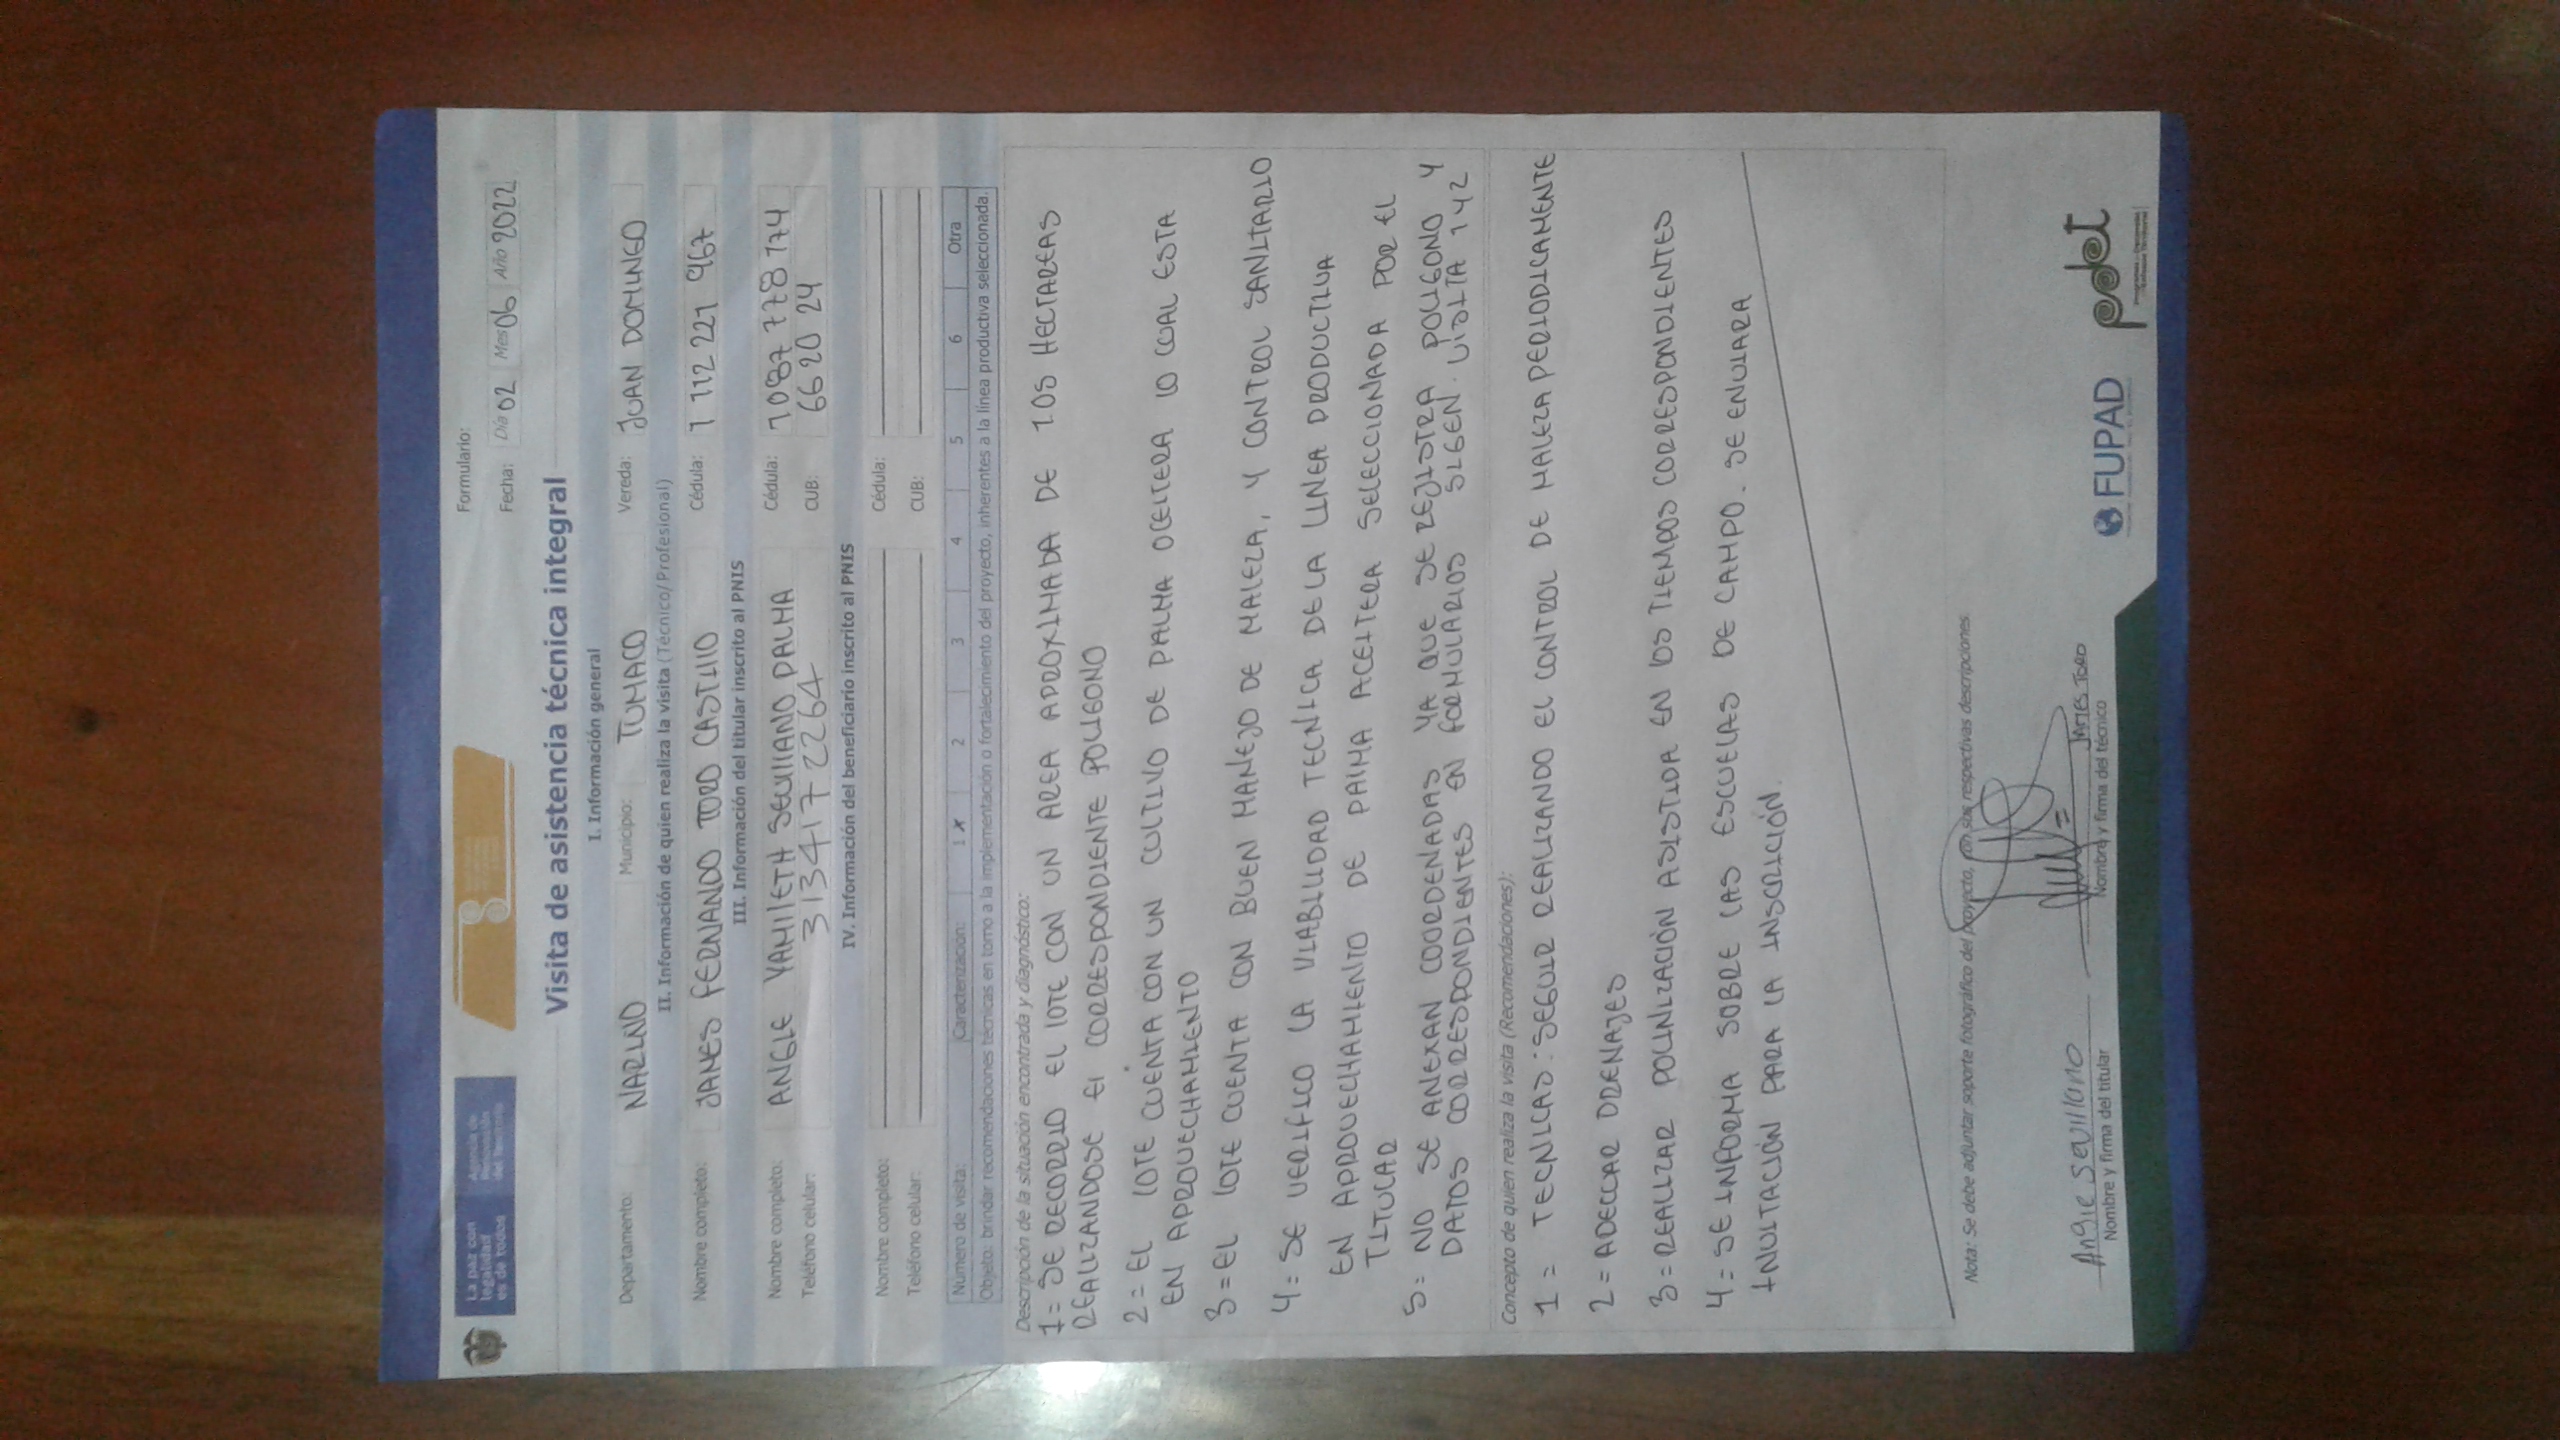 La paz con
legalidad
es de todos
Agencia de
Renovación
del Territorio
Formulario:
Fecha: Día 02 Mes 06 Año 2022
Visita de asistencia técnica integral
I. Información general
Departamento: NARIÑO Municipio: TUMACO Vereda: JUAN DOMINGO
II. Información de quien realiza la visita (Técnico/Profesional)
Nombre completo: JAMES FERNANDO TORO CASTILLO Cédula: 1 112 221 967
III. Información del titular inscrito al PNIS
Nombre completo: ANGIE YAMILETH SEVILLANO PALMA Cédula: 1087 778 174
Teléfono celular: 313417 2264 CUB: 66 20 24
IV. Información del beneficiario inscrito al PNIS
Nombre completo: Cédula:
Teléfono celular: CUB:
Número de visita: Caracterización: 1 X 2 3 4 5 6 Otra
Objeto: brindar recomendaciones técnicas en torno a la implementación o fortalecimiento del proyecto, inherentes a la línea productiva seleccionada.
Descripción de la situación encontrada y diagnóstico:
1= SE RECORRIO EL LOTE CON UN AREA APROXIMADA DE 10S HECTAREAS
REALIZANDOSE El CORRESPONDIENTE POLIGONO
2= EL LOTE CUENTA CON UN CULTIVO DE PALMA OCEITERA lO CUAL ESTA
EN APROVECHAMIENTO
3= EL LOTE CUENTA CON BUEN MANEJO DE MALEZA, Y CONTROL SANITARIO
4= SE VERIFICO LA VIABILIDAD TECNICA DE LA LINEA PRODUCTIVA
EN APROVECHAMIENTO DE PALMA ACEITERA SELECCIONADA POR EL
TITULAR
5= NO SE ANEXAN COORDENADAS YA QUE SE REJISTRA POLIGONO Y
DATOS CORRESPONDIENTES EN FORMULARIOS SIGEN. VISITA 1 Y 2
Concepto de quien realiza la visita (Recomendaciones):
1= TECNICAS: SEGUIR REALIZANDO EL CONTROL DE MALEZA PERIODICAMENTE
2= ADECUAR DRENAJES
3= REALIZAR POLINIZACIÓN ASISTIDA EN LOS TIEMPOS CORRESPONDIENTES
4= SE INFORMA SOBRE LAS ESCUELAS DE CAMPO. SE ENVIARA
INVITACIÓN PARA LA INSCRICIÓN.
Nota: Se debe adjuntar soporte fotográfico del proyecto, con sus respectivas descripciones
Angie Sevillano
JAMES TORO
Nombre y firma del titular Nombre y firma del técnico
FUPAD
pdet